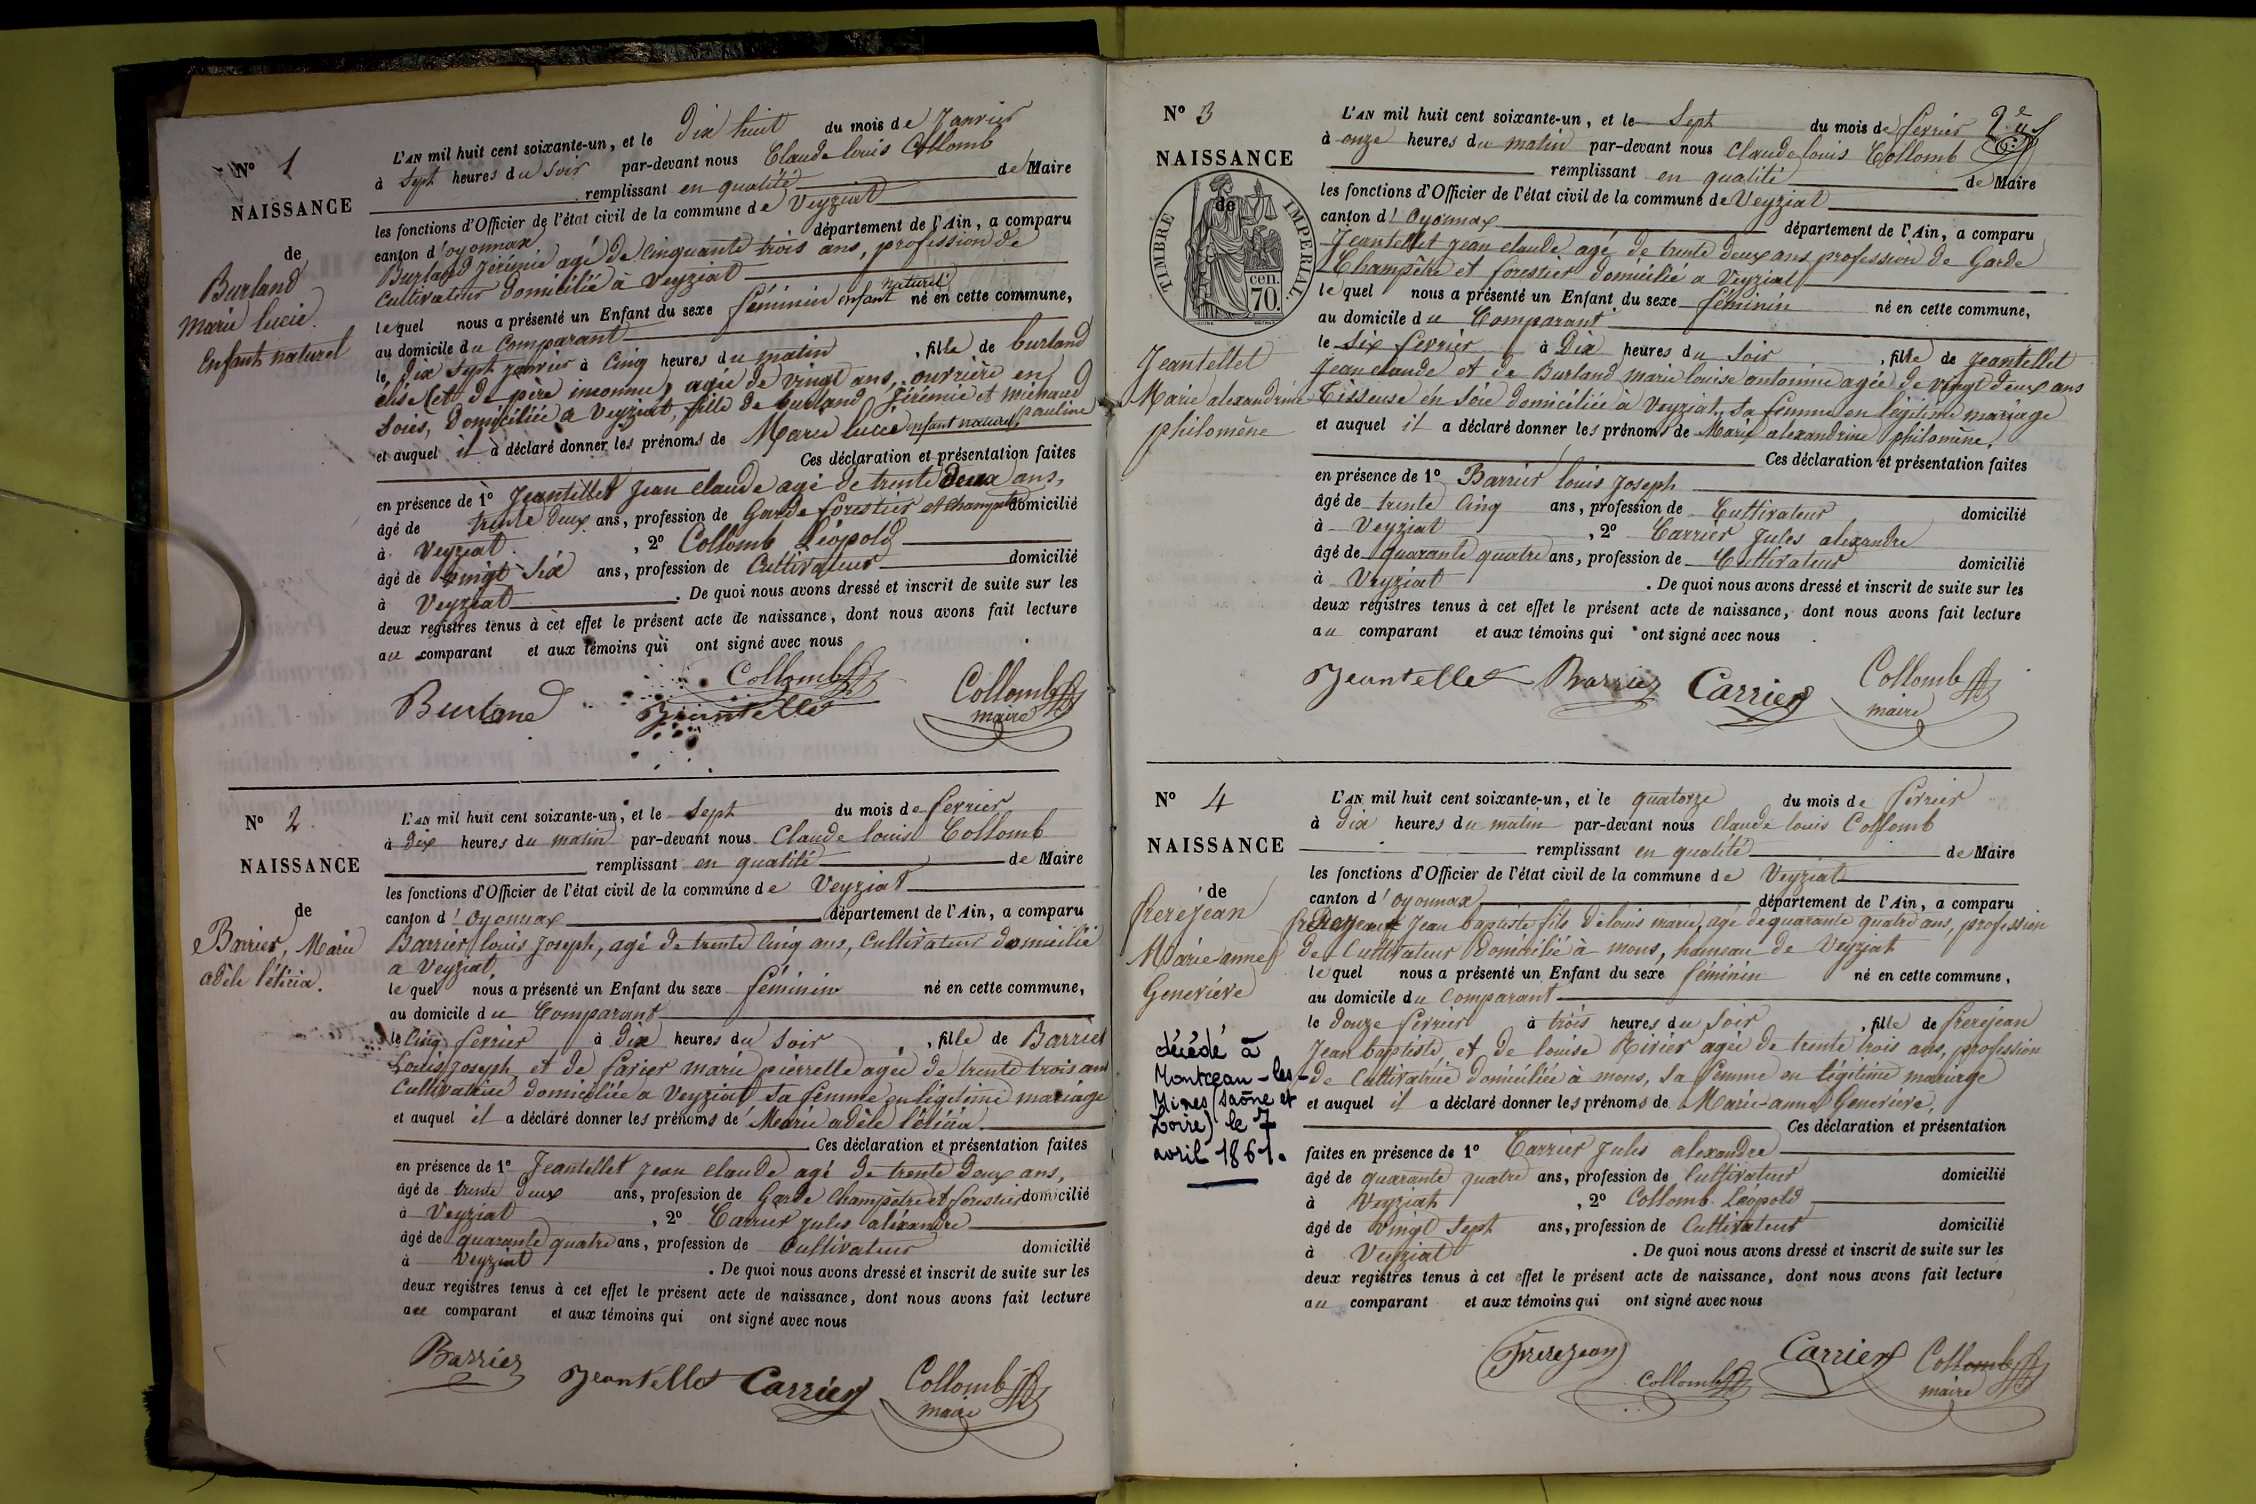 N° 1
NAISSANCE
de
Burland
Marie lucie.
Enfant naturel
L'AN mil huit cent soixante-un, et le dix huit du mois de Janvier
à sept heures du soir par-devant nous Claude louis Collomb
remplissant en qualité de Maire
les fonctions d'Officier de l'état civil de la commune de Veyziat
canton d'oyonnax département de l'Ain, a comparu
Burland Jérémie agé de cinquante trois ans, profession de
Cultivateur domiciliée à Veyziat
lequel nous a présenté un Enfant du sexe féminin enfant naturel né en cette commune,
au domicile du comparant
le dix sept janvier à cinq heures du matin, fille de burland
et de père inconnu, agée de vingt ans, ouvrière en
soies, domiciliée a Veyziat, fille de burland Jérémie et michaud pauline
et auquel il a déclaré donner les prénoms de Marie lucie enfant naturel,
Ces déclaration et présentation faites
en présence de 1° Jeantellet Jean claude agé de trente deux ans,
âgé de trente deux ans, profession de Garde forestier et champêtre domicilié
à Veyziat, 2° Collomb Léopold
âgé de vingt six ans, profession de Cultivateur domicilié
à Veyziat. De quoi nous avons dressé et inscrit de suite sur les
deux registres tenus à cet effet le présent acte de naissance, dont nous avons fait lecture
au comparant et aux témoins qui ont signé avec nous
Collomb
Burland Jeantellet Collomb
maire
N° 2.
NAISSANCE
de
Barrier, Marie
adèle léticia.
L'AN mil huit cent soixante-un, et le sept du mois de fevrier
à Dix heures du matin par-devant nous Claude louis Collomb
remplissant en qualité de Maire
les fonctions d'Officier de l'état civil de la commune de Veyziat
canton d'oyonnax département de l'Ain, a comparu
Barrier louis Joseph, agé de trente cinq ans, cultivateur domicilié
a Veyziat,
lequel nous a présenté un Enfant du sexe féminin né en cette commune,
au domicile du Comparant
le cinq fevrier à Dix heures du soir, fille de Barrier
Louis Joseph et de favier marie pierrette agée de trente trois ans
cultivatrice domiciliée a Veyziat sa femme en légitime mariage
et auquel il a déclaré donner les prénoms de Marie adèle léticia.
Ces déclaration et présentation faites
en présence de 1° Jeantellet Jean claude agé de trente deux ans,
âgé de trente deux ans, profession de Garde Champêtre et forestier domicilié
à Veyziat, 2° Carrier Jules aléxandre
âgé de quarante quatre ans, profession de Cultivateur domicilié
à Veyziat. De quoi nous avons dressé et inscrit de suite sur les
deux registres tenus à cet effet le présent acte de naissance, dont nous avons fait lecture
au comparant et aux témoins qui ont signé avec nous
Barrier Jeantellet Carrier Collomb
maire
N° 3
NAISSANCE
de
TIMBRE IMPERIAL.
cen.
70.
Jeantellet
Marie alexandrine
philomène
L'AN mil huit cent soixante-un, et le sept du mois de fevrier
à onze heures du matin par-devant nous Claude louis Collomb
remplissant en qualité de Maire
les fonctions d'Officier de l'état civil de la commune de Veyziat
canton d'Oyonnax département de l'Ain, a comparu
Jeantellet Jean claude agé de trente deux ans profession de Garde
Champêtre et forestier domicilié a Veyziat
lequel nous a présenté un Enfant du sexe féminin né en cette commune,
au domicile du Comparant
le six fevrier à Dix heures du soir, fille de Jeantellet
Jean claude et de Burland marie louise antonine agée de vingt deux ans
Tisseuse en soie domiciliée à Veyziat, sa femme en légitime mariage
et auquel il a déclaré donner les prénoms de Marie alexandrine philomène.
Ces déclaration et présentation faites
en présence de 1° Barrier louis Joseph
âgé de trente cinq ans, profession de Cultivateur domicilié
à Veyziat, 2° Carrier Jules alexandre
âgé de quarante quatre ans, profession de Cultivateur domicilié
à Veyziat. De quoi nous avons dressé et inscrit de suite sur les
deux registres tenus à cet effet le présent acte de naissance, dont nous avons fait lecture
au comparant et aux témoins qui ont signé avec nous
Jeantellet Barrier Carrier Collomb
maire
N° 4
NAISSANCE
de
frerejean
Marie-anne
Genevieve
décédé à
Montceau-les-
Mines (Saône et
Loire) le 7
avril 1861.
L'AN mil huit cent soixante-un, et le quatorze du mois de fevrier
à Dix heures du matin par-devant nous Claude louis Collomb
remplissant en qualité de Maire
les fonctions d'Officier de l'état civil de la commune de Veyziat
canton d'oyonnax département de l'Ain, a comparu
frerejean Jean baptiste fils de louis marie, agé de quarante quatre ans, profession
de Cultivateur domicilié à mons, hameau de Veyziat
lequel nous a présenté un Enfant du sexe féminin né en cette commune,
au domicile du Comparant
le douze fevrier à trois heures du soir, fille de frerejean
Jean baptiste, et de louise Rivier agée de trente trois ans, profession
de Cultivatrice domiciliée à mons, sa femme en légitime mariage
et auquel il a déclaré donner les prénoms de Marie-anne Genevieve,
Ces déclaration et présentation
faites en présence de 1° Carrier Jules alexandre
âgé de quarante quatre ans, profession de Cultivateur domicilié
à Veyziat, 2° Collomb Léopold
âgé de vingt sept ans, profession de Cultivateur domicilié
à Veyziat. De quoi nous avons dressé et inscrit de suite sur les
deux registres tenus à cet effet le présent acte de naissance, dont nous avons fait lecture
au comparant et aux témoins qui ont signé avec nous
Frerejean Collomb Carrier Collomb
maire